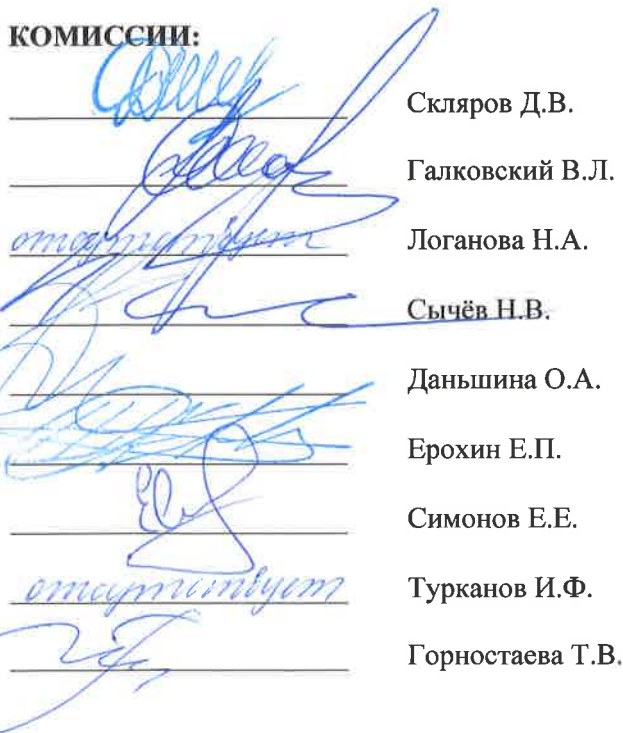 КОМИССИИ:
Скляров Д.В.
Галковский В.Л.
отсутствует Логанова Н.А.
Сычёв Н.В.
Даньшина О.А.
Ерохин Е.П.
Симонов Е.Е.
отсутствует Турканов И.Ф.
Горностаева Т.В.